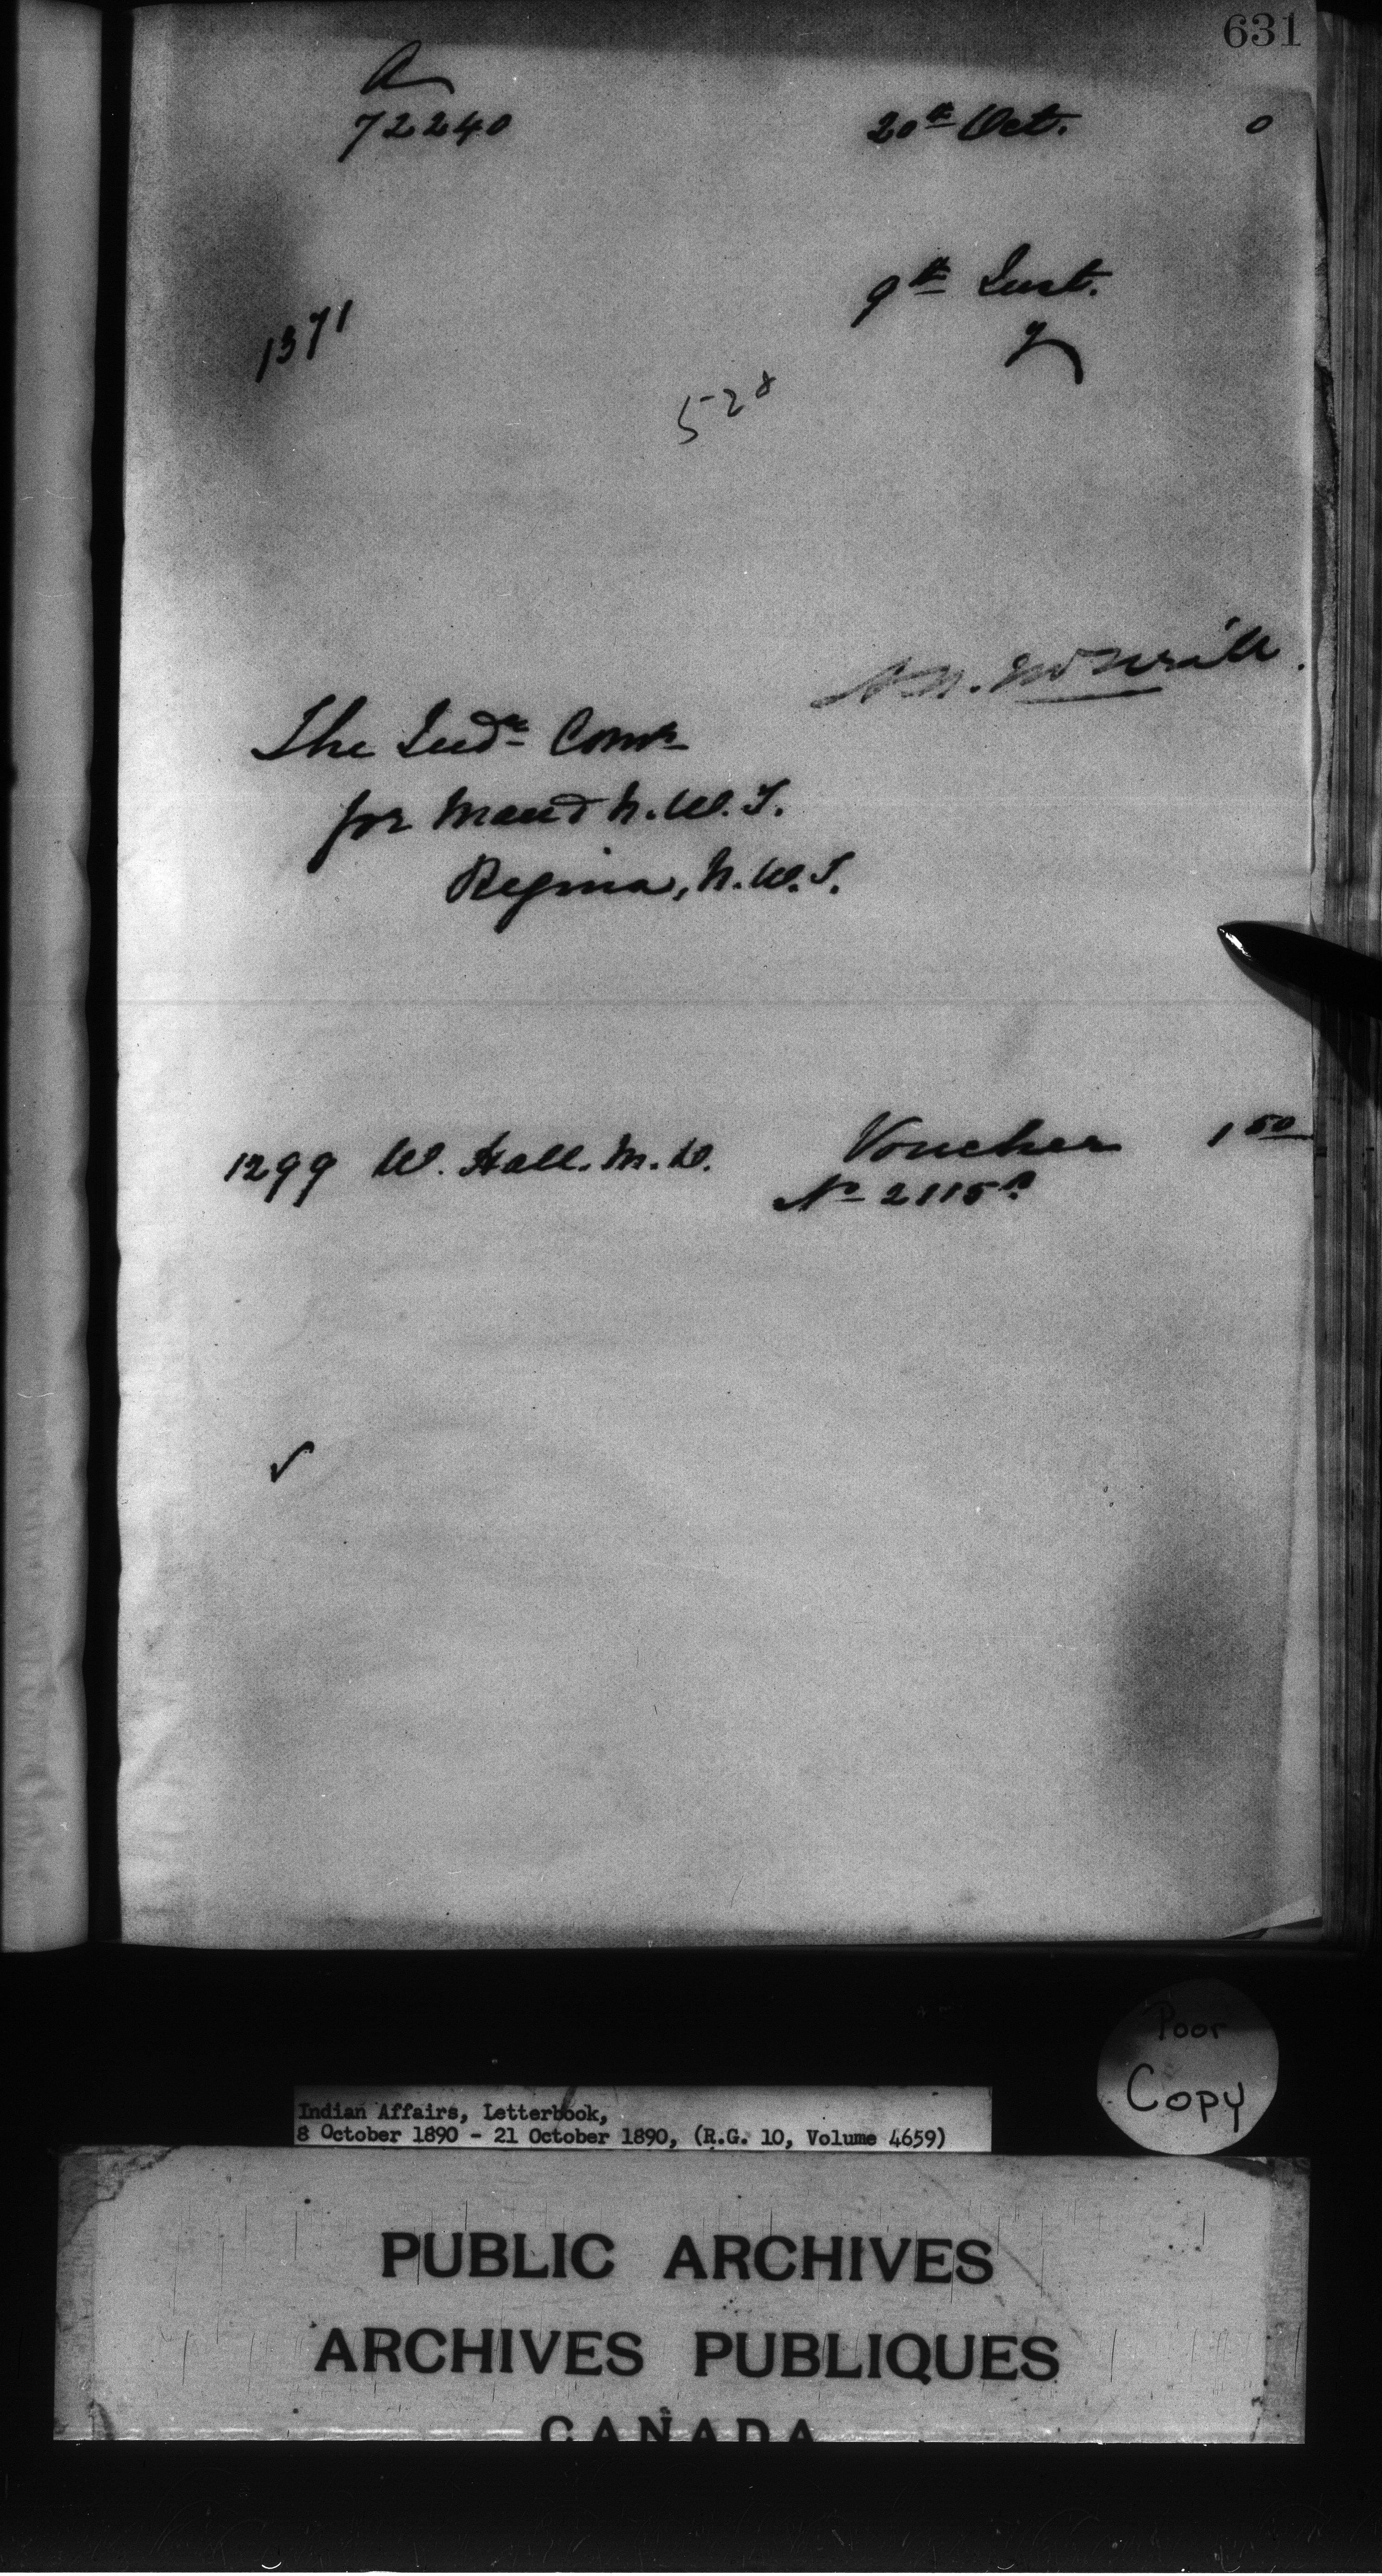 631
A
72240 20th Oct. 0
9th Inst.
1371
y
528
The Indn Comr
for Man d N.W.T.
Regina, N.W.T.
1299 W. Hall. M.D. Voucher 1 50
No 2115
✓
Poor
Copy
Indian Affairs, Letterbook,
8 October 1890 - 21 October 1890, (R.G. 10, Volume 4659)
PUBLIC ARCHIVES
ARCHIVES PUBLIQUES
CANADA